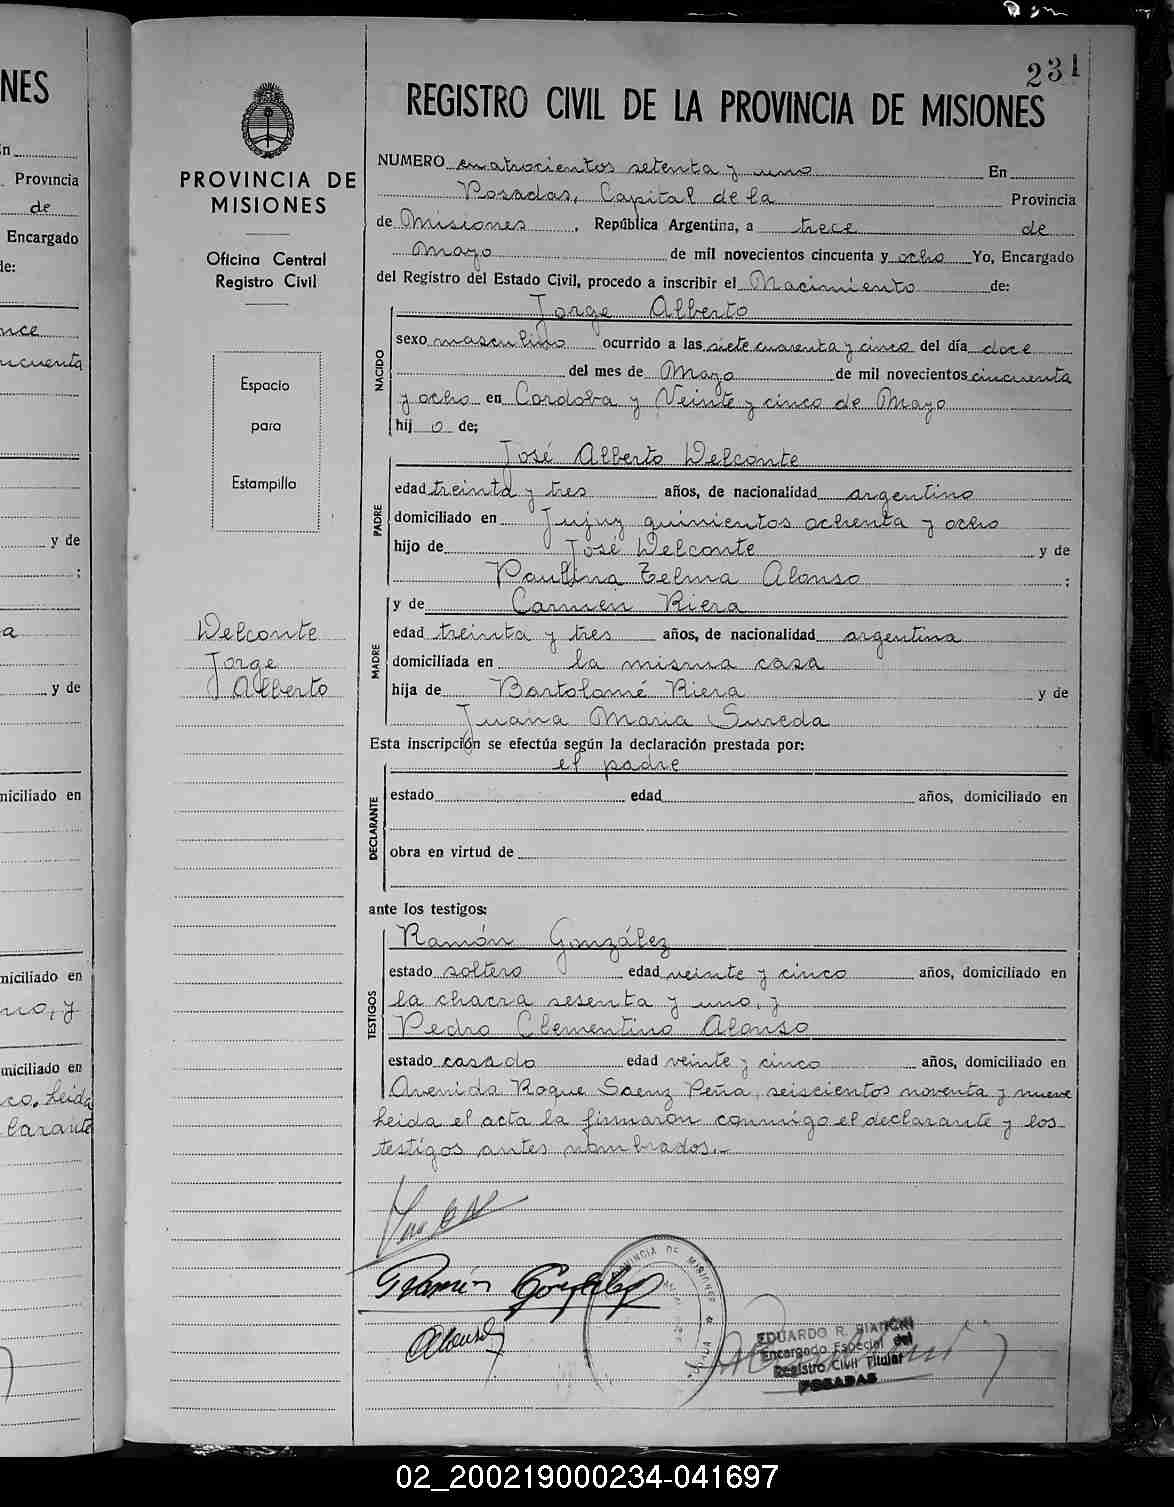 NES
En
Provincia
de
Encargado
de:
cuenta
y de
;
a
y de
miciliado en
miciliado en
miciliado en
co. Leida
231
REGISTRO CIVIL DE LA PROVINCIA DE MISIONES
PROVINCIA DE
MISIONES
Oficina Central
Registro Civil
Espacio
para
Estampilla
Welconte
Jorge
Alberto
NUMERO cuatrocientos setenta y uno En
Posadas, Capital de la Provincia
de Misiones, República Argentina, a trece de
Mayo de mil novecientos cincuenta y ocho Yo, Encargado
del Registro del Estado Civil, procedo a inscribir el Nacimiento de:
Jorge Alberto
NACIDO
sexo masculino ocurrido a las siete cuarenta y cinco del día doce
del mes de Mayo de mil novecientos cincuenta
y ocho en Cordoba y Veinte y cinco de Mayo
hij o de;
José Alberto Welconte
PADRE
edad treinta y tres años, de nacionalidad argentino
domiciliado en Jujuy quinientos ochenta y ocho
hijo de José Welconte y de
Paulina Telma Alonso ;
y de Carmen Riera
MADRE
edad treinta y tres años, de nacionalidad argentina
domiciliada en la misma casa
hija de Bartolomé Riera y de
Juana Maria Sureda
Esta inscripción se efectúa según la declaración prestada por:
el padre
DECLARANTE
estado edad años, domiciliado en
obra en virtud de
ante los testigos:
Ramón González
TESTIGOS
estado soltero edad veinte y cinco años, domiciliado en
la chacra sesenta y uno, y
Pedro Clementino Alonso
estado casado edad veinte y cinco años, domiciliado en
Avenida Roque Saenz Peña, seiscientos noventa y nueve
Leida el acta la firmaron conmigo el declarante y los
testigos antes nombrados.-
Ramón González
Alonso
PROVINCIA DE MISIONES
EDUARDO R. BIANCHI
Encargado Especial del
Registro Civil Titular
POSADAS
02_200219000234-041697